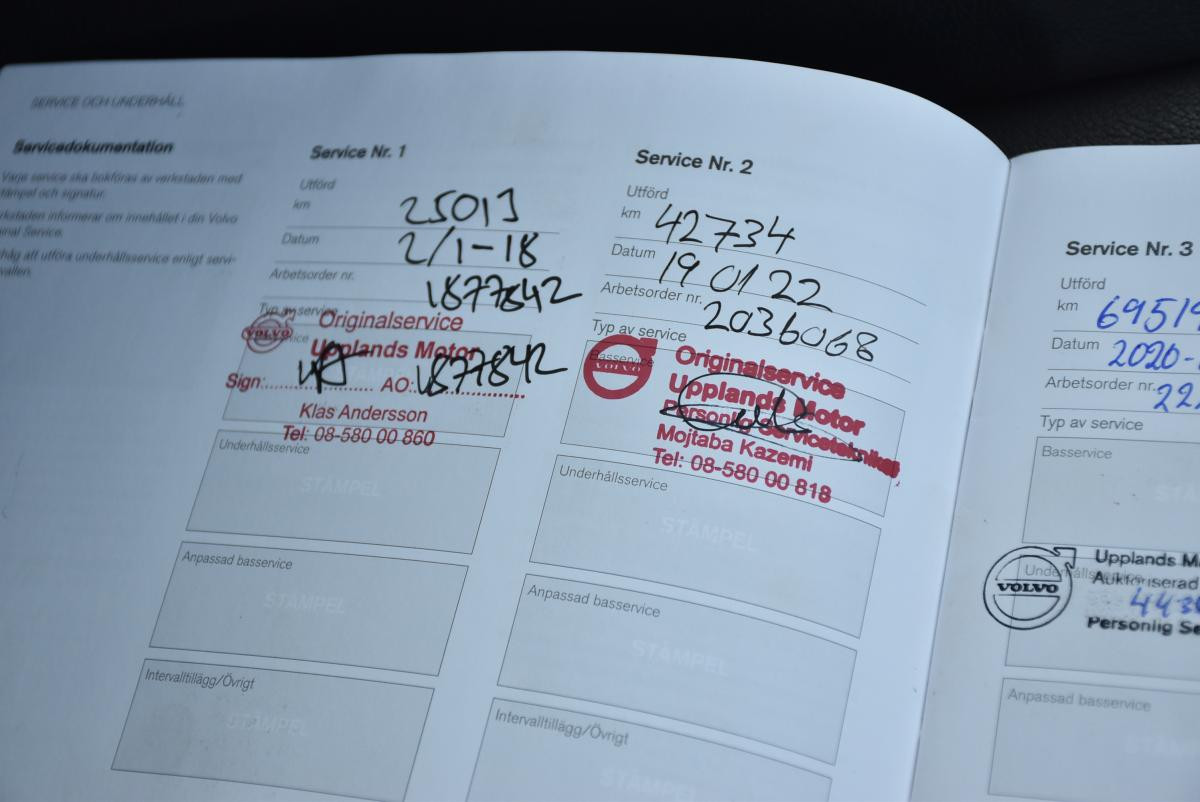 SERVICE OCH UNDERHÅLL
Servicedokumentation
Varje service ska bokföras av verkstaden med
stämpel och signatur.
rkstaden informerar om innehållet i din Volvo
inal Service.
håg att utföra underhållsservice enligt servi-
vallen.
Service Nr. 1
Utförd
km 25013
Datum 2/1-18
Arbetsorder nr. 1877842
Typ av service
VOLVO
Originalservice
Upplands Motor
Sign: AO: 1877842
Klas Andersson
Tel: 08-580 00 860
Underhållsservice
STÄMPEL
Anpassad basservice
STÄMPEL
Intervalltillägg/Övrigt
STÄMPEL
Service Nr. 2
Utförd
km 42734
Datum 19 01 22
Arbetsorder nr. 2036068
Typ av service
Basservice
VOLVO
Originalservice
Upplands Motor
Personlig Servicetekniker
Mojtaba Kazemi
Tel: 08-580 00 818
Underhållsservice
STÄMPEL
Anpassad basservice
STÄMPEL
Intervalltillägg/Övrigt
STÄMPEL
Service Nr. 3
Utförd
km 69519
Datum 2020-
Arbetsorder nr. 222
Typ av service
Basservice
Underhållsservice
VOLVO
Upplands M
Auktoriserad
443
Personlig Se
Anpassad basservice